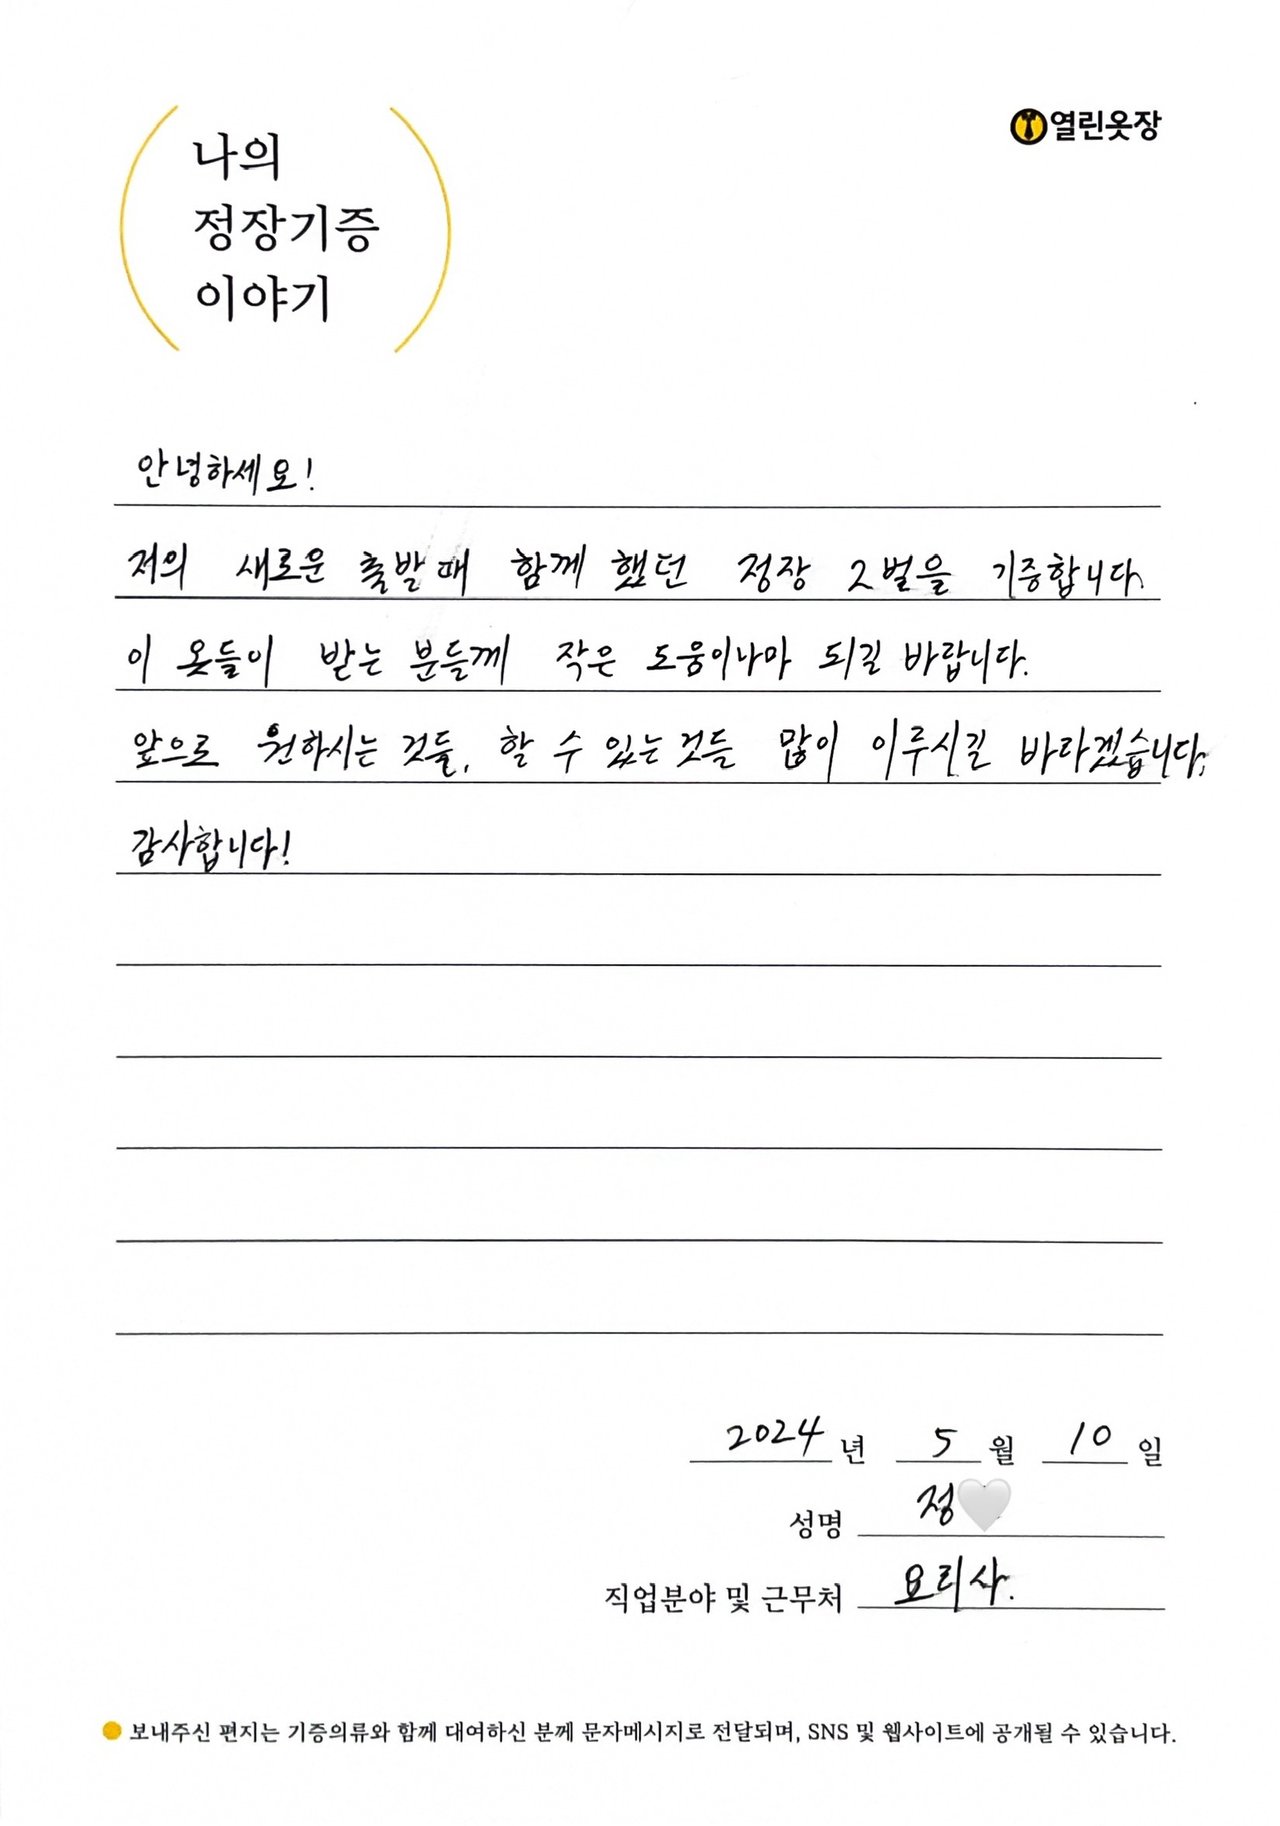 열린옷장
나의
정장기증
이야기
안녕하세요!
저의 새로운 출발때 함께 했던 정장 2벌을 기증합니다.
이 옷들이 받는 분들께 작은 도움이나마 되길 바랍니다.
앞으로 원하시는 것들, 할 수 있는 것들 많이 이루시길 바라겠습니다.
감사합니다!
2024 년 5 월 10 일
성명 정
직업분야 및 근무처 요리사.
보내주신 편지는 기증의류와 함께 대여하신 분께 문자메시지로 전달되며, SNS 및 웹사이트에 공개될 수 있습니다.